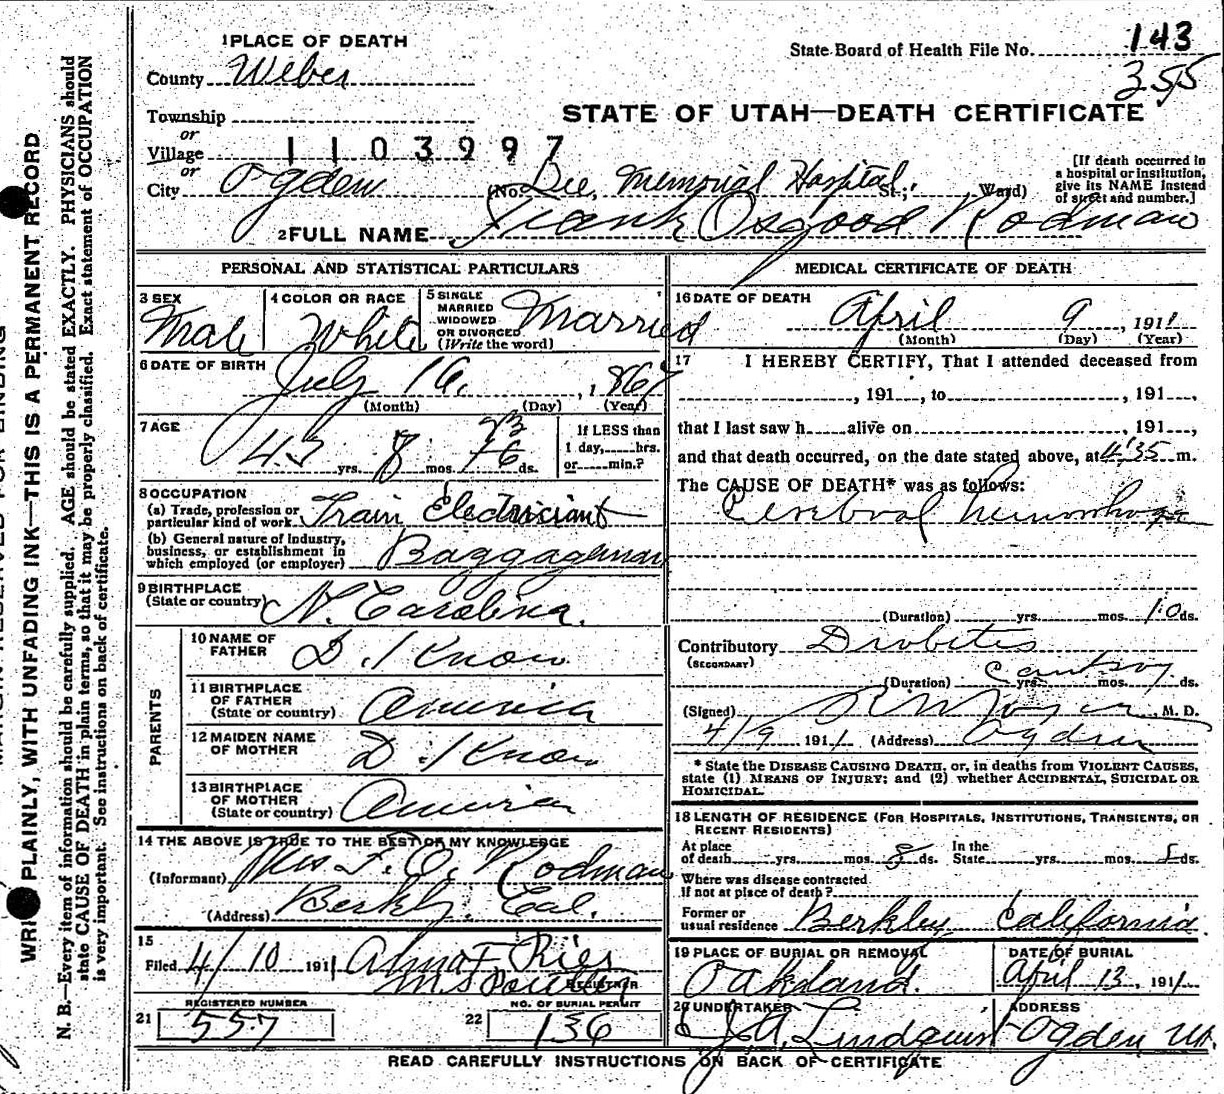 1 PLACE OF DEATH
County Weber
State Board of Health File No. 143
355
Township
or
Village
or
1103997
STATE OF UTAH—DEATH CERTIFICATE
City Ogden (No. Dee Memorial Hospital St.; Ward)
[If death occurred in
a hospital or institution,
give its NAME instead
of street and number.]
2 FULL NAME Frank Osgood Rodman
PERSONAL AND STATISTICAL PARTICULARS
3 SEX
Male
4 COLOR OR RACE
White
5 SINGLE
MARRIED
WIDOWED
OR DIVORCED
(Write the word)
Married
6 DATE OF BIRTH
July 16, 1867
(Month) (Day) (Year)
7 AGE
43 yrs. 8 mos. 23 ds.
If LESS than
1 day, hrs.
or min.?
8 OCCUPATION
(a) Trade, profession or
particular kind of work Train Electrician
(b) General nature of industry,
business, or establishment in
which employed (or employer) Baggageman
9 BIRTHPLACE
(State or country) N. Carolina.
PARENTS
10 NAME OF
FATHER D. I Know
11 BIRTHPLACE
OF FATHER
(State or country) America
12 MAIDEN NAME
OF MOTHER D. I Know
13 BIRTHPLACE
OF MOTHER
(State or country) America
14 THE ABOVE IS TRUE TO THE BEST OF MY KNOWLEDGE
(Informant) Mrs F. O. Rodman
(Address) Berkly. Cal.
15
Filed 4/10 1911
REGISTRAR
REGISTERED NUMBER
21 557
NO. OF BURIAL PERMIT
22 136
MEDICAL CERTIFICATE OF DEATH
16 DATE OF DEATH
April 9, 1911
(Month) (Day) (Year)
17 I HEREBY CERTIFY, That I attended deceased from
, 191 , to , 191 ,
that I last saw h alive on , 191 ,
and that death occurred, on the date stated above, at 4:35 m.
The CAUSE OF DEATH* was as follows:
Cerebral hemorrhage
(Duration) yrs. mos. 10 ds.
Contributory Diabetes
(SECONDARY)
(Duration) yrs. mos. ds.
(Signed) , M. D.
4/9 1911 (Address) Ogden
* State the DISEASE CAUSING DEATH, or, in deaths from VIOLENT CAUSES,
state (1) MEANS OF INJURY; and (2) whether ACCIDENTAL, SUICIDAL OR
HOMICIDAL.
18 LENGTH OF RESIDENCE (FOR HOSPITALS, INSTITUTIONS, TRANSIENTS, OR
RECENT RESIDENTS)
At place
of death yrs. mos. ds.
In the
State yrs. mos. ds.
Where was disease contracted
if not at place of death?
Former or
usual residence Berkley California.
19 PLACE OF BURIAL OR REMOVAL
Oakland.
DATE OF BURIAL
April 13, 1911
20 UNDERTAKER
ADDRESS
Ogden Ut.
READ CAREFULLY INSTRUCTIONS ON BACK OF CERTIFICATE
PLAINLY, WITH UNFADING INK—THIS IS A PERMANENT RECORD
N. B.—Every item of information should be carefully supplied. AGE should be stated EXACTLY. PHYSICIANS should
state CAUSE OF DEATH in plain terms, so that it may be properly classified. Exact statement of OCCUPATION
is very important. See instructions on back of certificate.